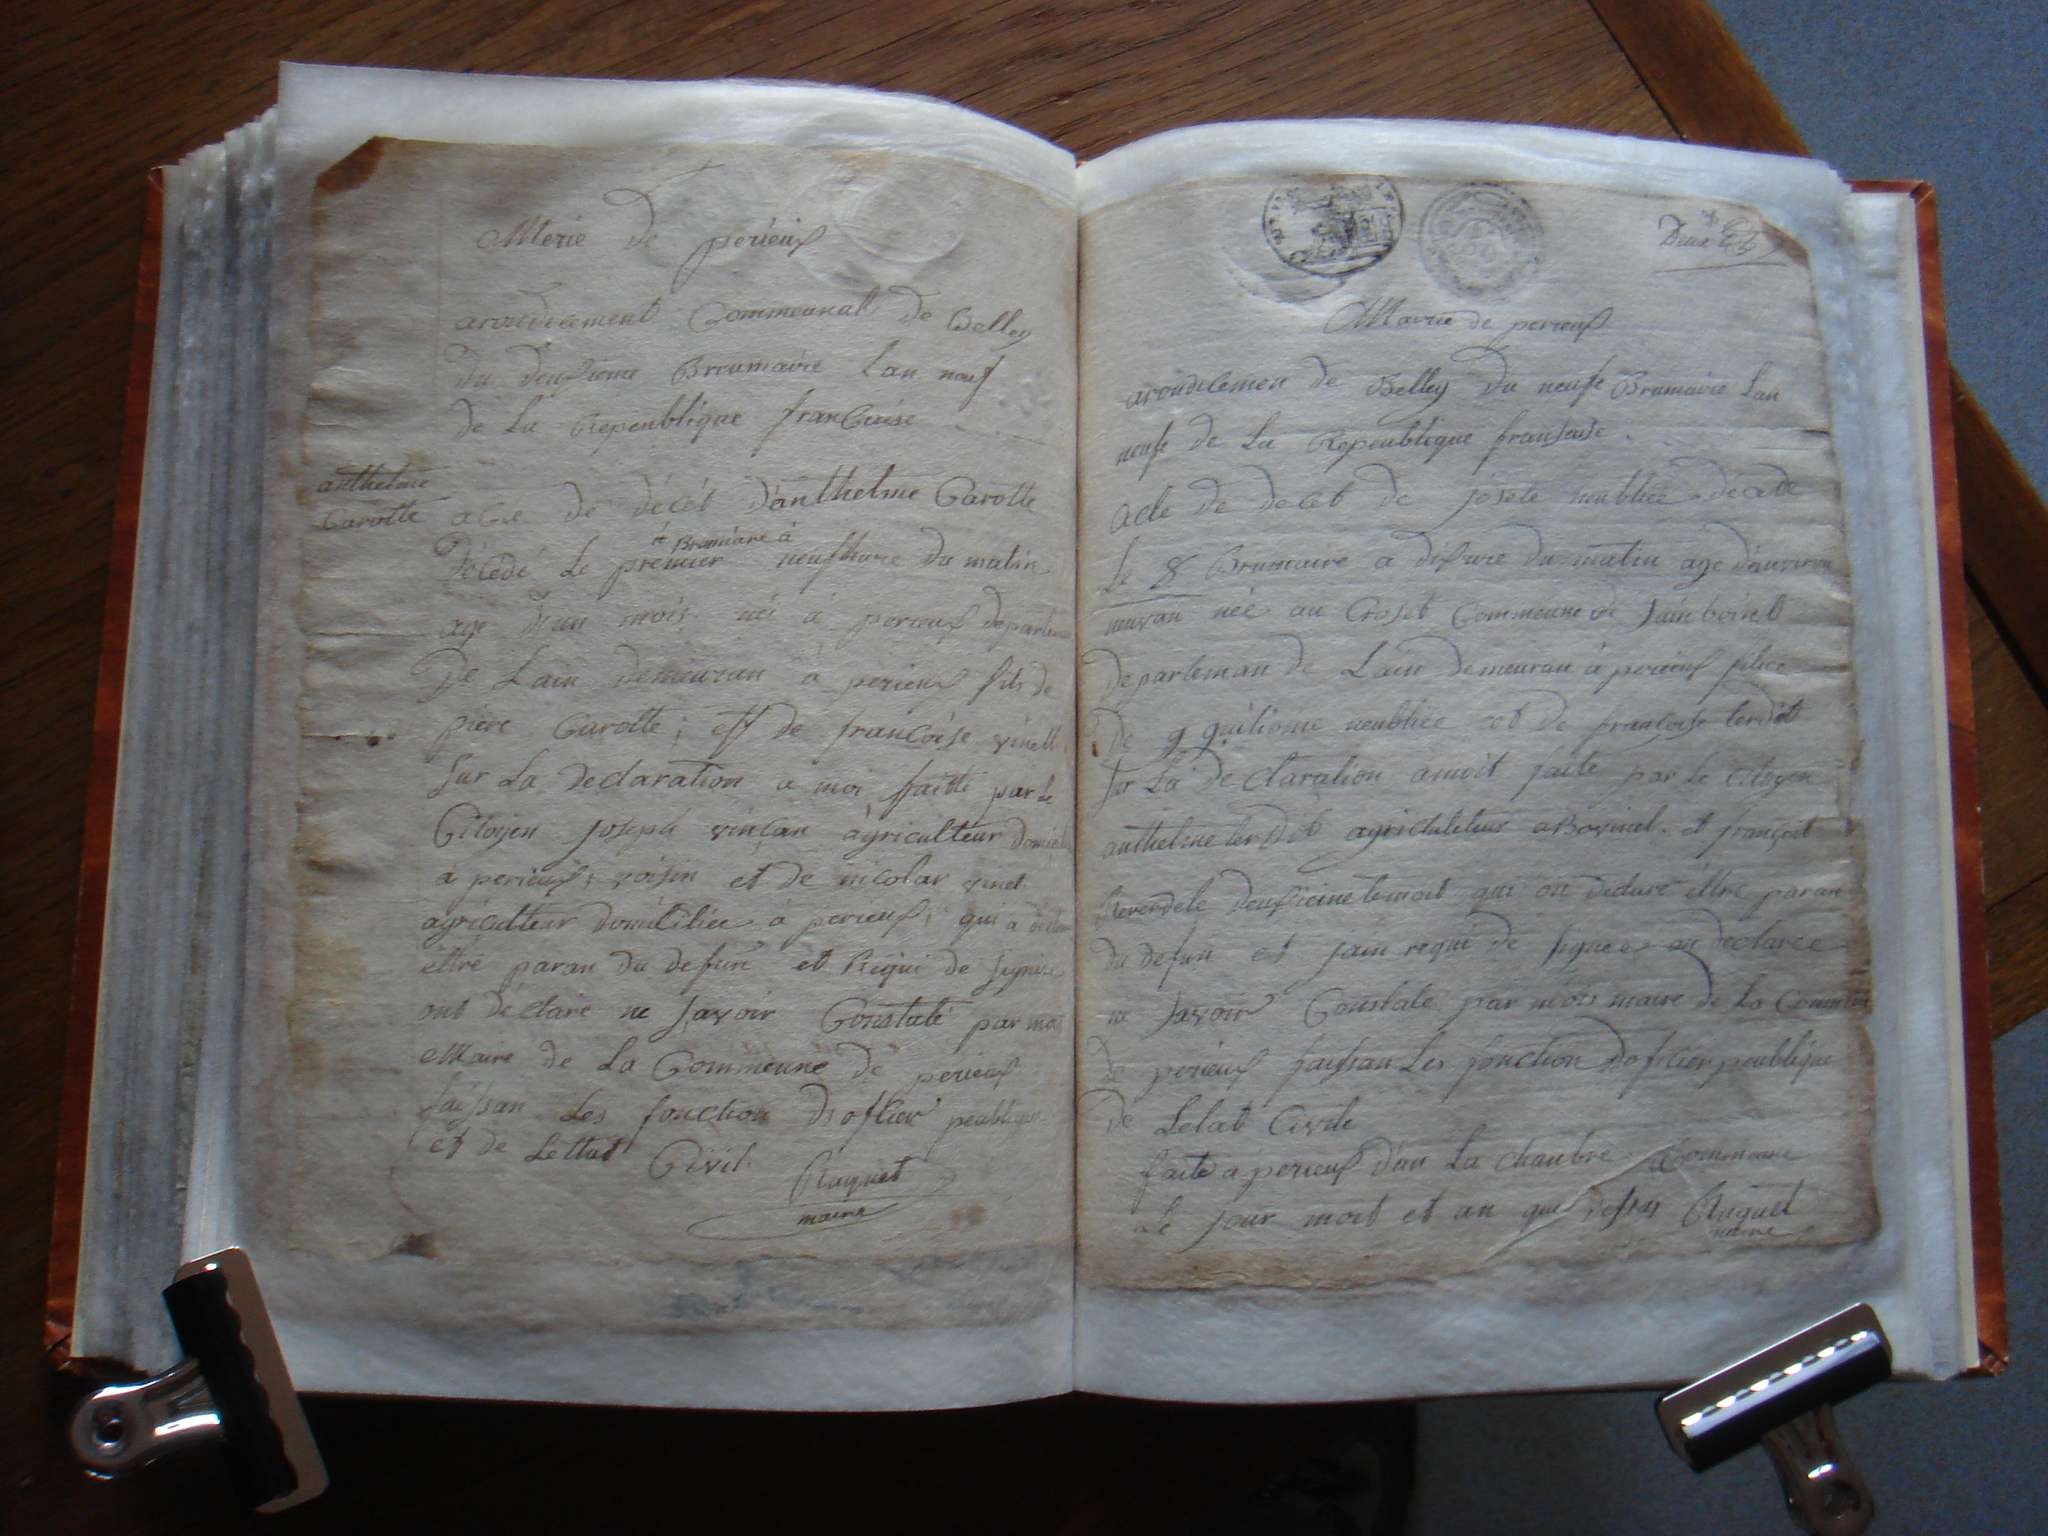 Merie de perieuf
arondicement Commeunal de Belley
du deusieme Breumaire Lan neuf
de La Repeublique francaise
anthelme
Carotte
acte de décét d'anthelme Carotte
Décédé Le premier Brumaire à neuf heure du matin
age d'un mois né à perieuf
De Lain demeuran à perieuf fils de
piere Carotte; et de francoise
sur La Declaration a moi faitte par le
Citoyen joseph vincan agriculteur
a perieuf; voisin et de nicolas vinet
agriculteur domiciliée à perieuf; qui a
ettre paran du defun et Requi de signer
ont déclaré ne savoir Constaté par moi
Maire de La Commeune de perieuf
faissan Les fonction d'oficier peublique
et de Lettat Civil
Ruguet
maire
Deux
Mairie de perieuf
arondicemen de Belley du neufe Brumaire Lan
neufe de La Republique franseise.
Acte de decet de josete neubliee decede
Le 8 Brumaire a diseure du matin age d'anviron
neuvan née au Croset Commeune de Sain boinet
departeman de Lain demeuran à perieuf filiee
De guiliome neubliee et de francoise terdit
sur La declaration amoit faite par Le Citoyen
anthelme terdit agriculteur a Bovinel et françoit
deusieme temoit qui on declare ettre paran
du defun et sain requi de signee on declaree
ne savoir Constate par mois maire de La Commeune
de perieuf faissan Les fonction d'oficier peublique
de Letat Civile
faite a perieuf dan La chanbre Commeune
Le jour moit et an que dessus Ruguet
maire